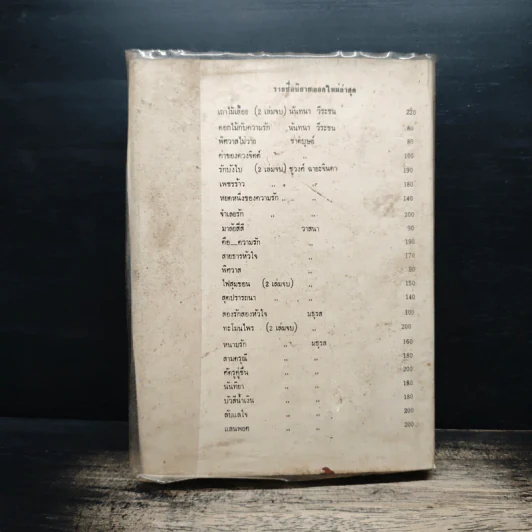 รายชื่อนิยายออกใหม่ล่าสุด
เถาไม้เลื้อย (2 เล่มจบ) นันทนา วีระชน 220
ดอกไม้กับความรัก นันทนา วีระชน 80
พิศวาสไม่วาย ชาติบุษย์ 80
ค่าของดวงจิตต์ ,, 100
รักบังใบ (2 เล่มจบ) ชูวงศ์ ฉายะจินดา 190
เพชรร้าว ,, ,, 180
หยดหนึ่งของความรัก ,, ,, 140
จำเลยรัก ,, ,, 200
มาลัยสีสี วาสนา 90
คือ....ความรัก ,, 190
สายธารหัวใจ ,, 170
พิศวาส ,, 80
ไฟสุมขอน (2 เล่มจบ) ,, 150
สุดปรารถนา ,, ,, 140
สองรักสองหัวใจ มธุรส 100
ทะโมนไพร (2 เล่มจบ) ,, 200
หนามรัก ,, มธุรส 160
สามดรุณี ,, ,, 180
ศัตรูคู่ชื่น ,, ,, 200
นันทิยา ,, ,, 180
บัวสีน้ำเงิน ,, ,, 180
ลับแลใจ ,, ,, 200
แสนพยศ ,, ,, 200